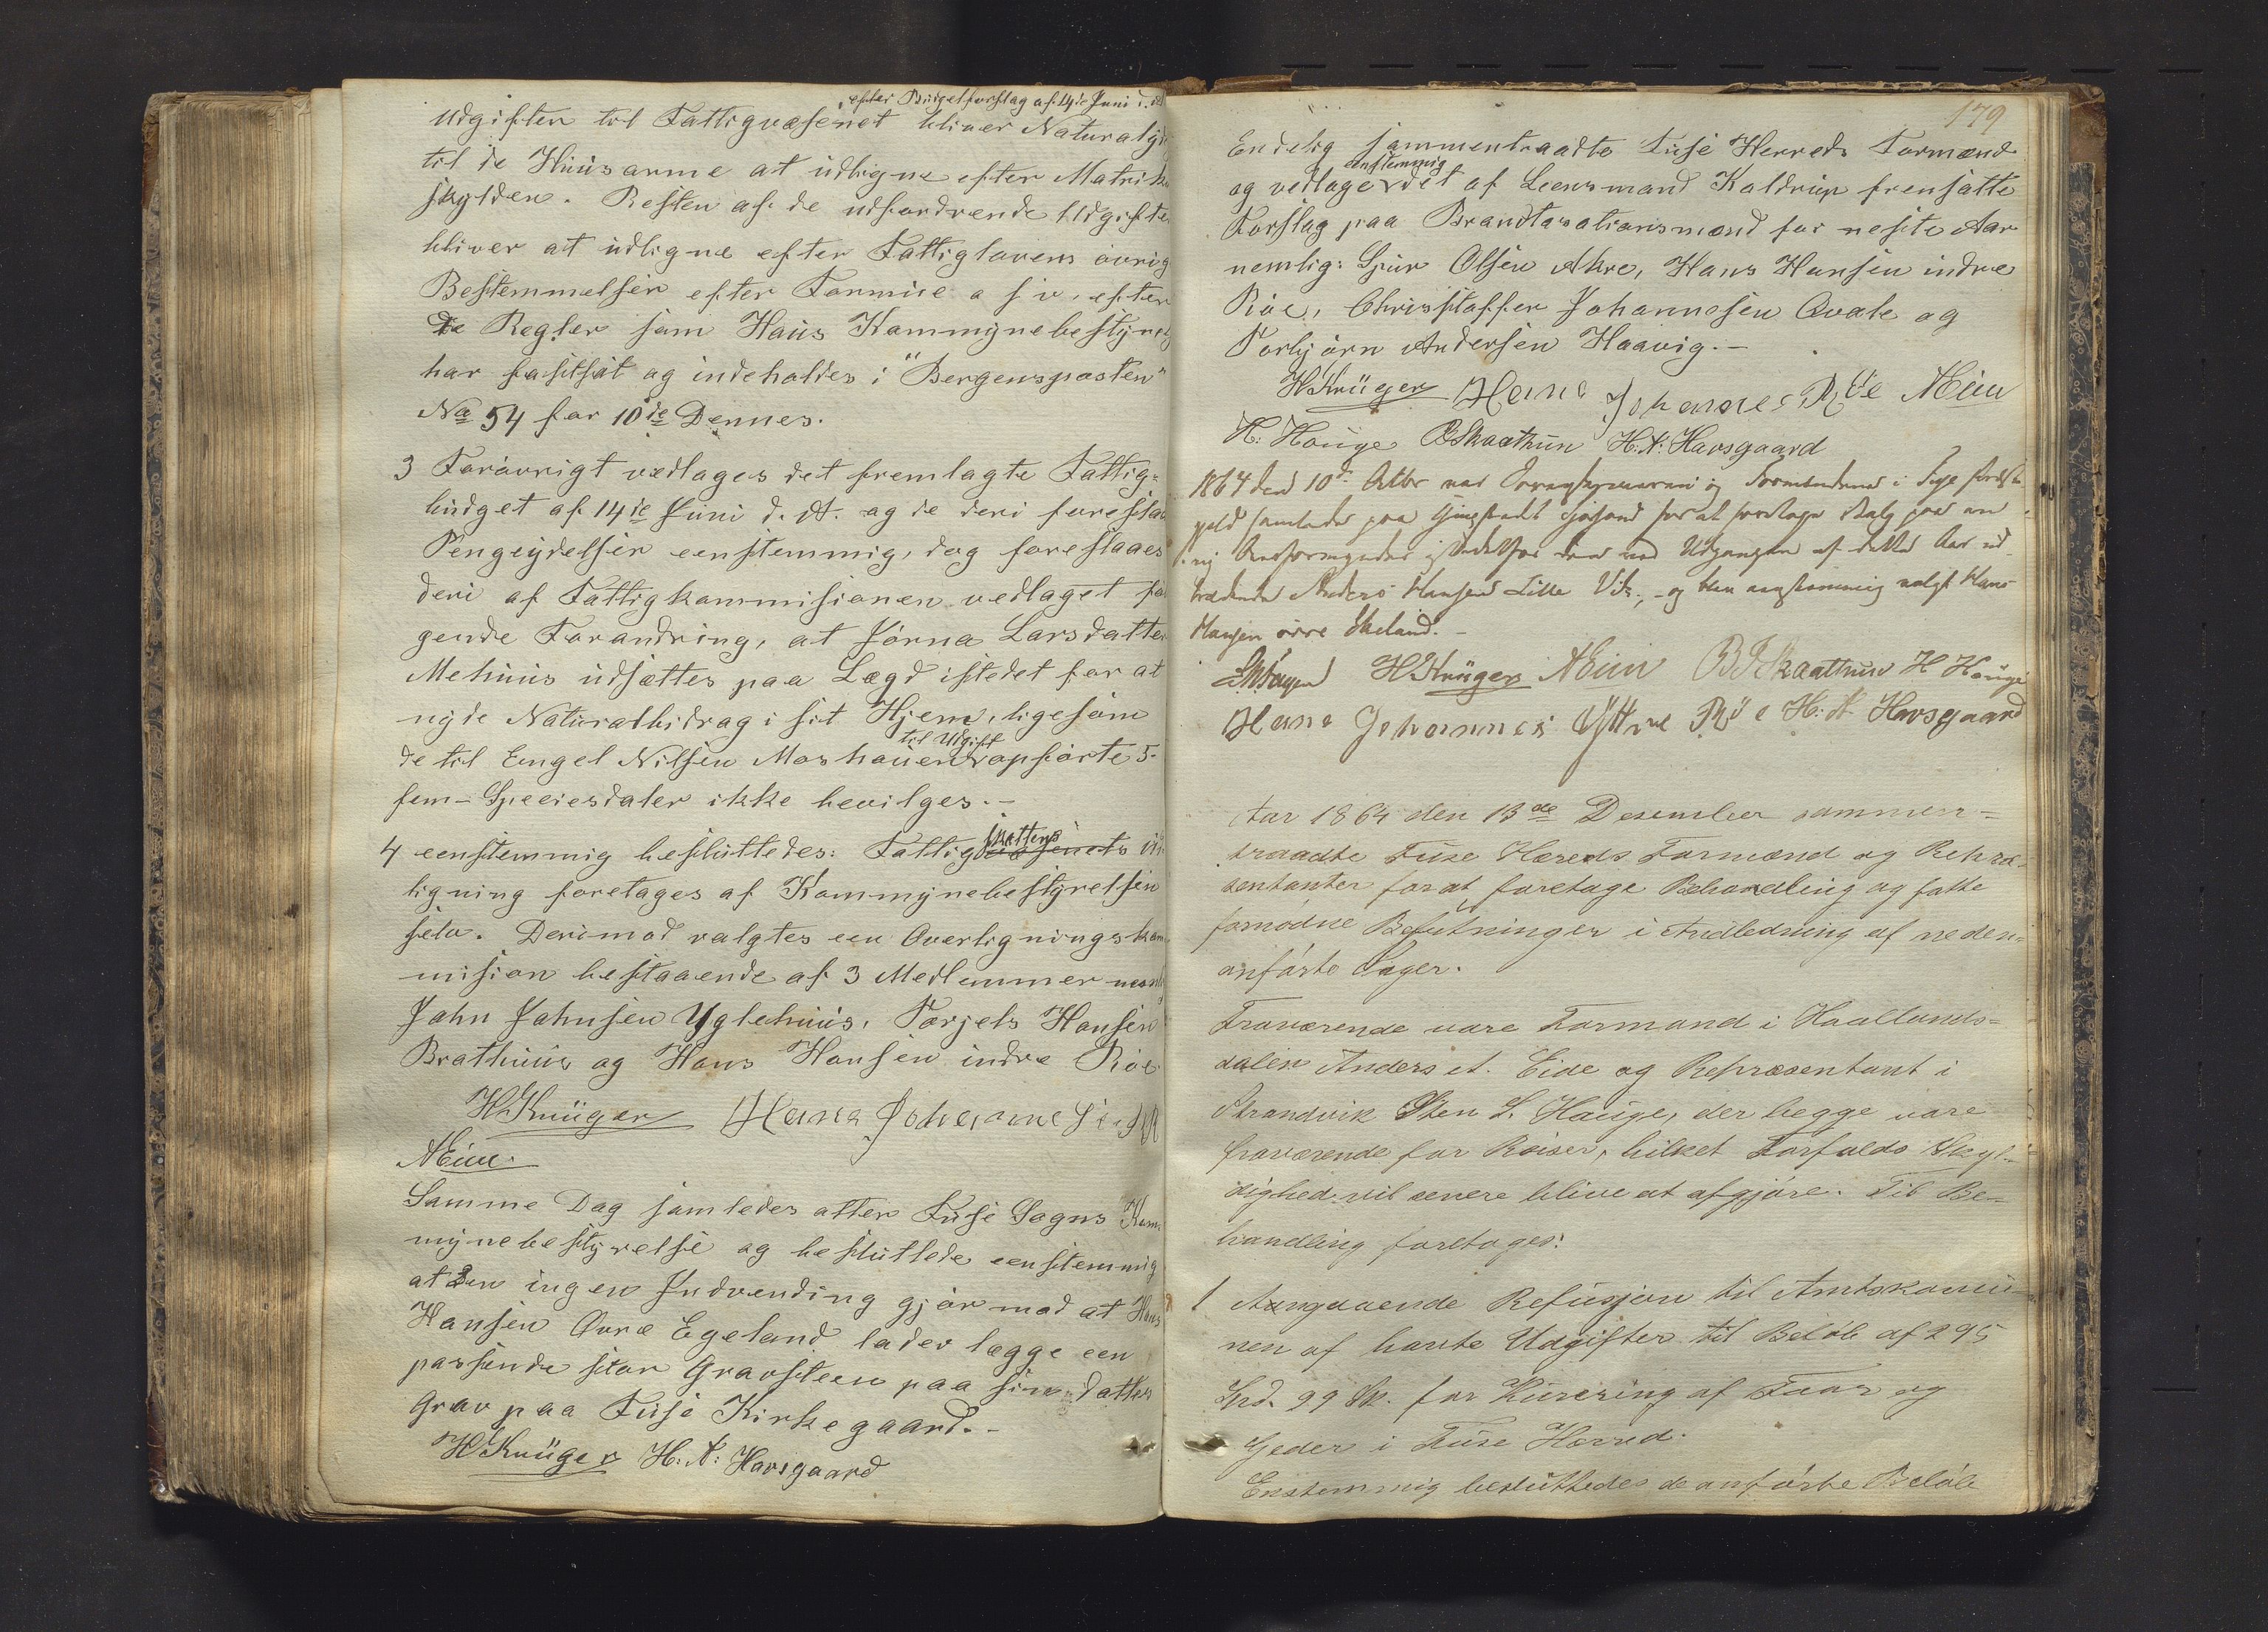 efter Büdgetforslag af 14de Juni d. A.
Udgiften til Fattigvæsenet bliver Naturalyd
til de Huusarme at udligne efter Matrik
skylden. Resten af de udfordrende Udgifter
bliver at udligne efter Fattiglovens øvrig
Bestemmelser efter Formue o s v, efter
de Regler som Haus Kommynebestyrels
har fastsat og indeholdes i "Bergensposten"
No 54 for 10de Dennes.
3 Forøvrigt vedtages det fremlagte Fattig-
büdget af 14de Juni d. A. og de deri foreslaa
Pengeydelser eenstemmig, dog foreslaaes
deri af Fattigkommisionen vedtaget føl
gende Forandring, at Jørna Larsdatter
Mehuus udsættes paa Lægd istedet for at
nyde Naturalbidrag i sit Hjem, ligesom
til Udgift
de til Engel Nilsen Moshauen opførte 5-
fem- Speciesdaler ikke bevilges.-
skattens
4 eenstemmig besluttedes: Fattigvæsenets ud
ligning foretages af Kommynebestyrelsen
selv. Derimod valgtes een Overligningskom
mision bestaaende af 3 Medlemmer neml
John Johnsen Yglehuus, Torjels Hansen
Brathuus og Hans Hansen indre Røe.
HKrüger Hans Johannesen R
NEiue.
Samme Dag samledes atter Fuse Sogns Kom
mynebestyrelse og besluttede eenstemmig
at den ingen Indvending gjør mod at Hans
Hansen Øvre Egeland lader lægge een
passende stor Gravsteen paa sin datters
Grav paa Fuse Kirkegaard.-
HKrüger H. N: Havsgaard
179
Endelig sammentraadte Fuse Herreds Formænd
enstemmig
og vedtoge det af Leensmand Koldrup fremsatte
Forslag paa Brandtaxationsmænd for neste Aar
nemlig: Sjur Olsen Akre, Hans Hansen indre
Røe, Christoffer Johannesen Qvale og
Torbjørn Andersen Haavig.-
HKrüger Hans Johannes Røe NEiue
H. Hauge BSkaathun H. N: Havsgaard
1864 den 10de Octbr var Overformynderen og Formændene i Fuse Præste
gjeld samlede paa Gjerstad for at foretage Valg paa en
ny Overformynder istedetfor den ved Udgangen af dette Aar ud-
trædende Anders Hansen Lille Vik, - og blev eenstemmig valgt Hans
Hansen øvre Ekeland.-
HKrüger NEiue BSkaathun H Hauge
Hans Johannes Yttre Røe H. N. Havsgaard
Aar 1864 den 13de Desember sammen-
traadte Fuse Hereds Formænd og Repræ-
sentanter for at foretage Behandling og fatte
fornødne Beslutninger i Anledning af neden-
anførte Sager.
Fraværende vare Formand i Haallands-
dalen Anders A. Eide og Repræsentant i
Strandvik Sten S. Hauge, der begge vare
fraværende for Reiser, hilket Forfalds Skyl-
dighed vil senere blive at afgjøre. Til Be-
handling foretoges:
1 Aangaaende Refusjon til Amtskomu-
nen af havte Udgifter til Beløb af 295
Spd. 99 Sk. for Kurering af Faar og
Geder i Fuse Herred.
Enstemmig besluttedes de anførte Beløb